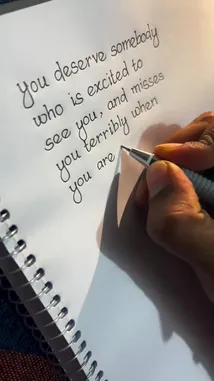 you deserve somebody
who is excited to
see you, and misses
you terribly when
you are